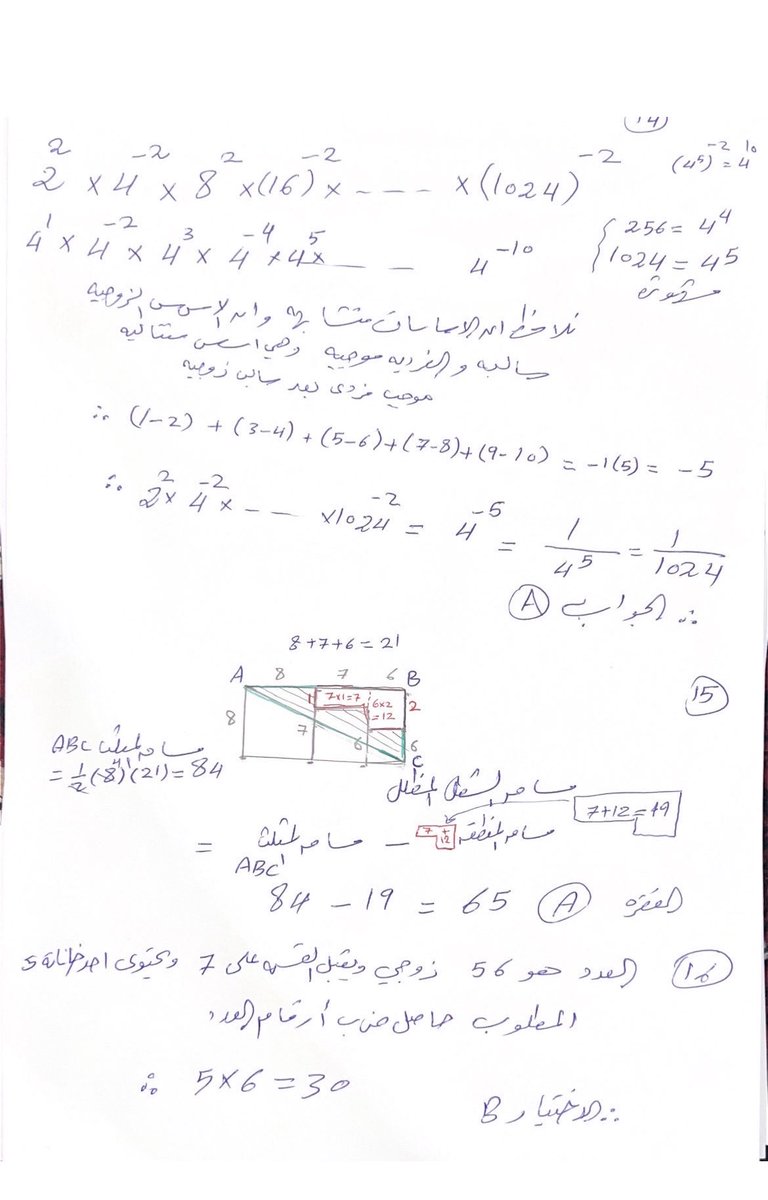 14
2² × 4⁻² × 8² × (16)⁻² × ---- × (1024)⁻²    (4⁵)⁻² = 4¹⁰
4¹ × 4⁻² × 4³ × 4⁻⁴ × 4⁵ × -- -- 4⁻¹⁰    { 256 = 4⁴
1024 = 4⁵
نلاحظ ان الاساسات متشابهة وان الاسس الزوجيه
سالبه والفرديه موجبه وهي اسس متتاليه
موجب فردي بعد سالب زوجيه
∴ (1-2) + (3-4) + (5-6) + (7-8) + (9-10) = -1(5) = -5
∴ 2² × 4⁻² × ---- × 1024⁻² = 4⁻⁵ = 1/4⁵ = 1/1024
∴ الجواب A
15
8+7+6 = 21
A 8 7 6 B
7×1=7 6×2 2
=12
8 7 6 6
C
مساحة المثلث ABC
= ½(8)(21) = 84
مساحة الشكل المظلل
= مساحة المثلث ABC − مساحة المنطقه 7+12    7+12=19
84 − 19 = 65 A الفقره
16 العدد هو 56 زوجي ويقبل القسمه على 7 ويحتوي احد خاناته 5
المطلوب حاصل ضرب أرقام العدد
∴ 5×6 = 30
∴ الاختيار B